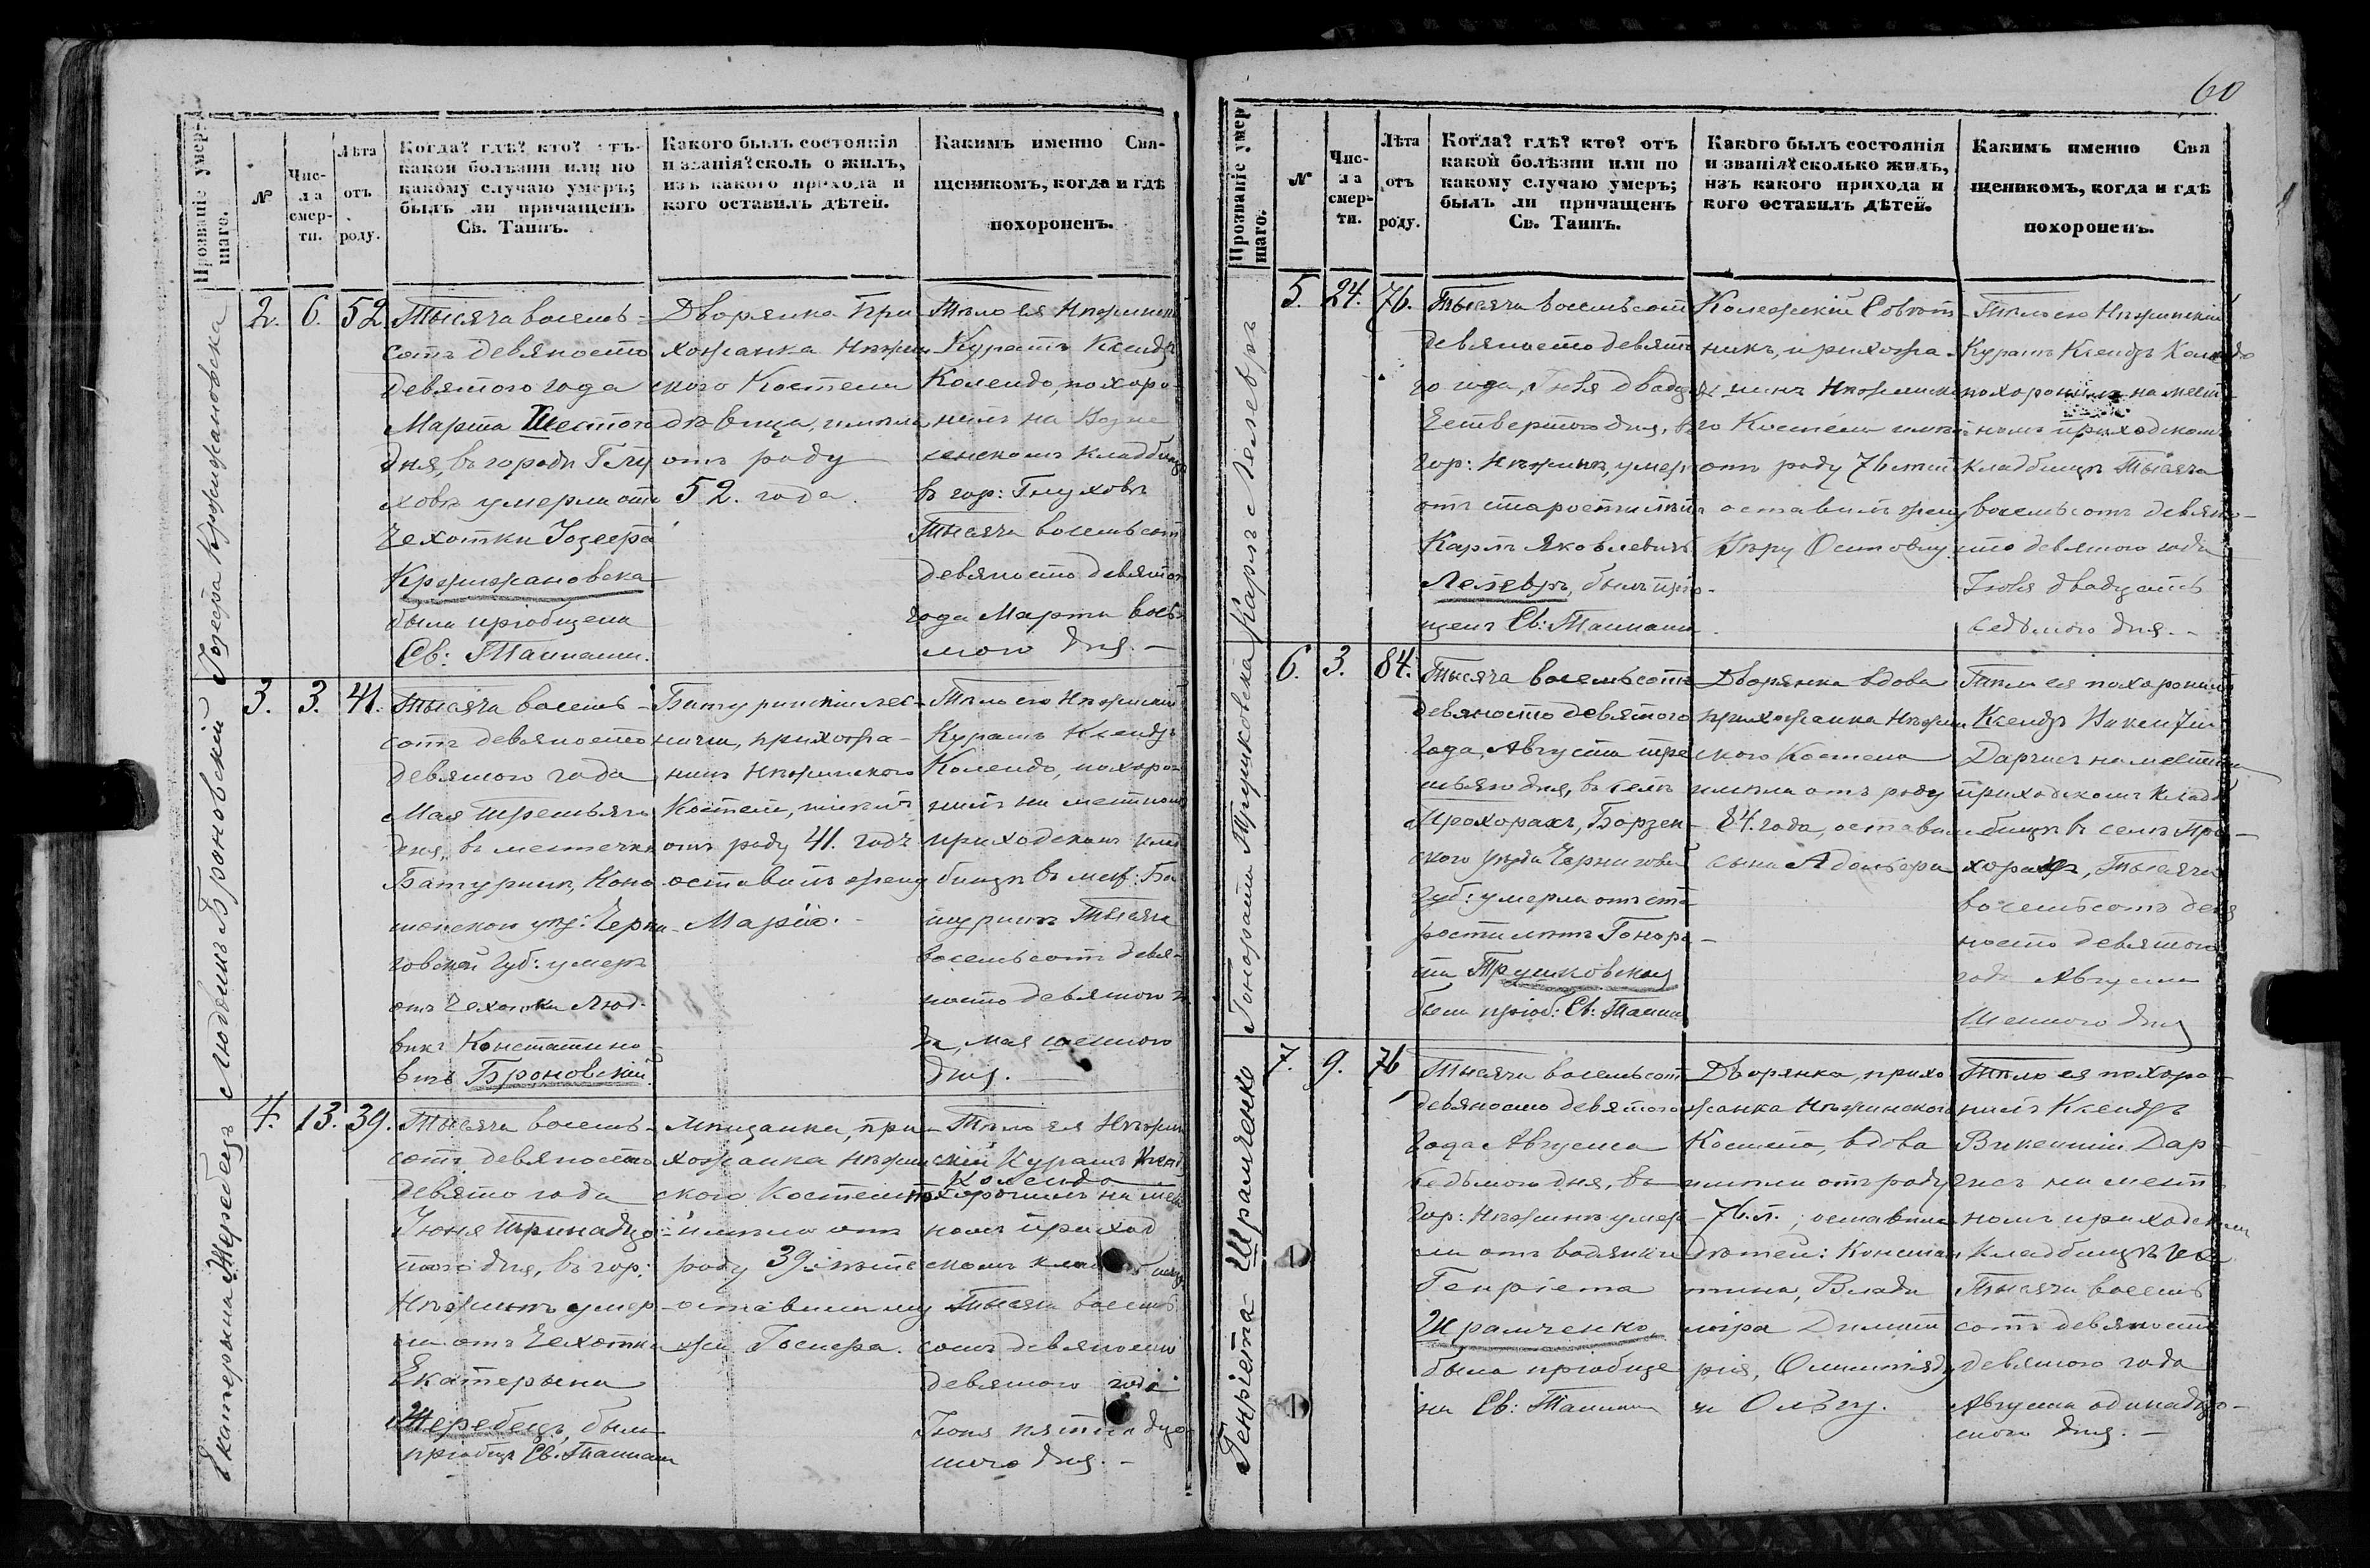 60
Прозваніе умер-
шаго.
№
Чис-
ла
смер-
ти.
Лѣта
отъ
роду.
Когда? гдѣ? кто? отъ
какой болѣзни или по
какому случаю умеръ;
былъ ли причащенъ
Св. Таинъ.
Какого былъ состоянія
и званія? сколько жилъ,
изъ какого прихода и
кого оставилъ дѣтей.
Какимъ именно Свя-
щеникомъ, когда и гдѣ
похороненъ.
Іозефа Кржижановска
2.
6.
52
Тысяча восемь-
сотъ девяносто
девятого года
Марта Шестого
дня, въ городѣ Глу
ховѣ умерла отъ
Чехотки Іозефа
Кржижановска
была пріобщена
Св: Тайнами.
Дворянка При
хожанка Нѣжин
ского Костела
дѣвица, имѣла
отъ роду
52. года.
Тѣло ея Нѣжинскій
Куратъ Ксендзъ
Колендо, похоро-
нилъ на Возне
сенскомъ кладбищѣ
въ гор: Глуховѣ
Тысяча восемьсотъ
девяносто девятого
года Марта вось-
мого дня. —
Людвикъ Броновскій
3.
3.
41.
Тысяча восемь-
сотъ девяносто
девятого года
Мая третьяго
дня, въ местечкѣ
Батуринѣ, Коно
топскои уѣз: Черни-
говской Губ: умеръ
отъ Чехотки Люд-
викъ Константино
вичъ Броновскій.
Батуринскій лес-
ничій, прихожа-
нинъ Нѣжинского
Костела, имѣлъ
отъ роду 41. годъ
оставилъ жену
Марію. -
Тѣло его Нѣжинскій
Куратъ Ксендзъ
Колендо, похоро-
нилъ на местномъ
приходскомъ клад
бищѣ въ мес: Ба
туринѣ Тысяча
восемьсотъ девя-
носто девятого го
да, мая шестого
дня. —
Екатерына Жеребецъ
4.
13.
39.
Тысяча восемь-
сотъ девяносто
девято года
Іюня тринадцо-
того дня, въ гор:
Нѣжинѣ умер-
ла отъ Чехотки
Екатерына
Жеребецъ, была
пріобщ Св. Тайнами
Мѣщанка, при-
хожанка Нѣжин
ского Костела
имѣла отъ
роду 39. лѣтъ
оставила му
жа Іосифа.
Тѣло ея Нѣжин
скій Куратъ Ксенд
Колендо
похоронилъ на мест
номъ приход
скомъ кладбищѣ
Тысяча восемь
сотъ девяносто
девятого года
Іюня пятнадцо
того дня. -
Карлъ Лелевръ
5.
24.
76.
Тысяча восемьсотъ
девяносто девято
го года, Іюля двадцать
Четвертого дня, въ
гор: Нѣжинѣ, умеръ
отъ старости лѣтъ
Карлъ Яковлевичъ
Лелевръ, былъ прю-
щенъ Св: Тайнами
Колежскій Совѣт-
никъ, прихожа-
нинъ Нѣжинско
го Костела имѣлъ
отъ роду 76 лѣтъ
оставилъ жену
Вѣру Осиповну
Тѣло его Нѣжинскій
Куратъ Ксендзъ Колендо
похоронилъ на мест-
номъ приходскомъ
кладбищѣ Тысяча
восемьсотъ девяно-
сто девятого года
Іюля двадцать
седьмого дня. -
Гонората Трушковска
6.
3.
84.
Тысяча восемьсотъ
девяносто девятого
года, Августа тре
тьяго дня, въ селѣ
Прохорахъ, Борзен-
ского уѣзда Чернигов
Губ: умерла отъ ста
рости лѣтъ Гонора-
та Трушковская
была пріоб: Св: Тайн
Дворянка вдова
прихожанка Нѣжин
ского Костела
имѣла отъ роду
84. года, оставила
сына Адольфа
Тѣло ея похоронилъ
Ксендзъ Викентій
Даргисъ на местном
приходскомъ кладб
бищѣ въ селѣ Про-
хорахъ, Тысяча
восемьсотъ девя
носто девятого
года Августа
Шестого дня
Генріета Шрамченко
7.
9.
76
Тысяча восемьсотъ
девяносто девятого
года Августа
седьмого дня, въ
гор: Нѣжинѣ умер-
ла отъ водянки
Генріета
Шрамченко
была пріобще
на Св: Тайнами
Дворянка, прихо
жанка Нѣжинского
Костела, вдова
имѣла отъ роду
76. л. ; оставила
дѣтей: Констан
тина, Влади
міра Димит
рія, Олимпіяду
и Ольгу.
Тѣло ея похоро-
нилъ Ксендзъ
Викентій Дар-
гисъ на мест
номъ приходском
кладбищѣ
Тысяча восемь
сотъ девяносто
девятого года
Августа одинадцо-
того дня. —